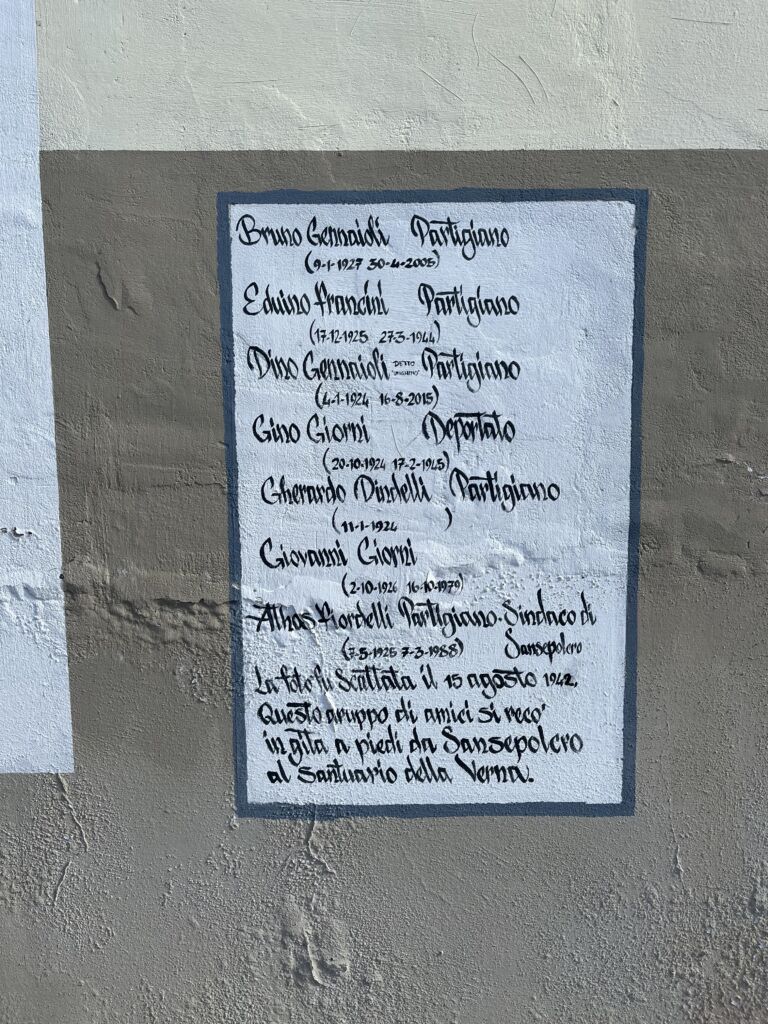 Bruno Gennaioli Partigiano
(9-1-1927 30-4-2005)
Eduino Francini Partigiano
(17-12-1925 27-3-1944)
Dino Gennaioli DETTO Partigiano
(4-1-1924 16-8-2015)
Gino Giorni Deportato
(20-10-1924 17-2-1945)
Gherardo Dindelli Partigiano
(11-1-1924 )
Giovanni Giorni
(2-10-1926 16-10-1979)
Athos Fiordelli Partigiano. Sindaco di
(7-5-1925 7-3-1988) Sansepolcro
La foto fu scattata il 15 agosto 1942.
Questo gruppo di amici si recò
in gita a piedi da Sansepolcro
al Santuario della Verna.